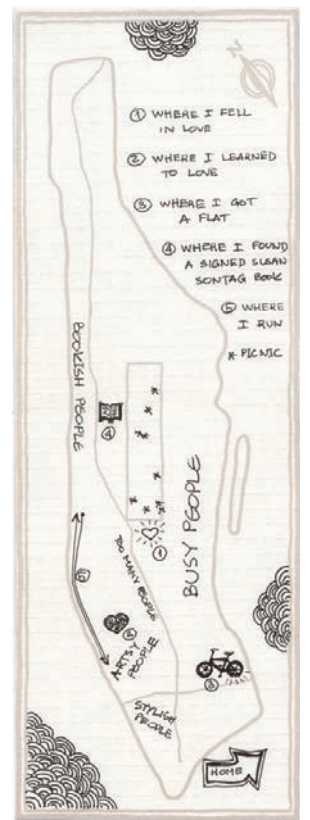 N
① WHERE I FELL
IN LOVE
② WHERE I LEARNED
TO LOVE
③ WHERE I GOT
A FLAT
④ WHERE I FOUND
A SIGNED SUSAN
SONTAG BOOK
⑤ WHERE
I RUN
* PICNIC
BOOKISH PEOPLE
④
BUSY PEOPLE
①
TOO MANY PEOPLE
⑤
②
ARTSY
PEOPLE
③
STYLISH
PEOPLE
HOME